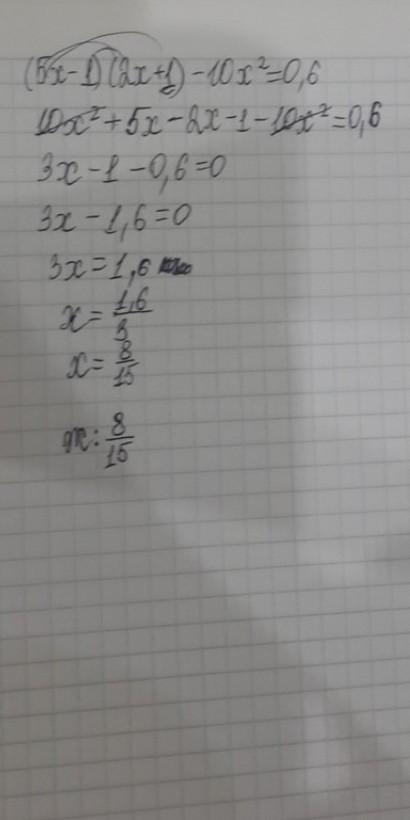 (5x-1)(2x+1)-10x²=0,6
10x²+5x-2x-1-10x²=0,6
3x-1-0,6=0
3x-1,6=0
3x=1,6
x=1,6/3
x=8/15
: 8/15